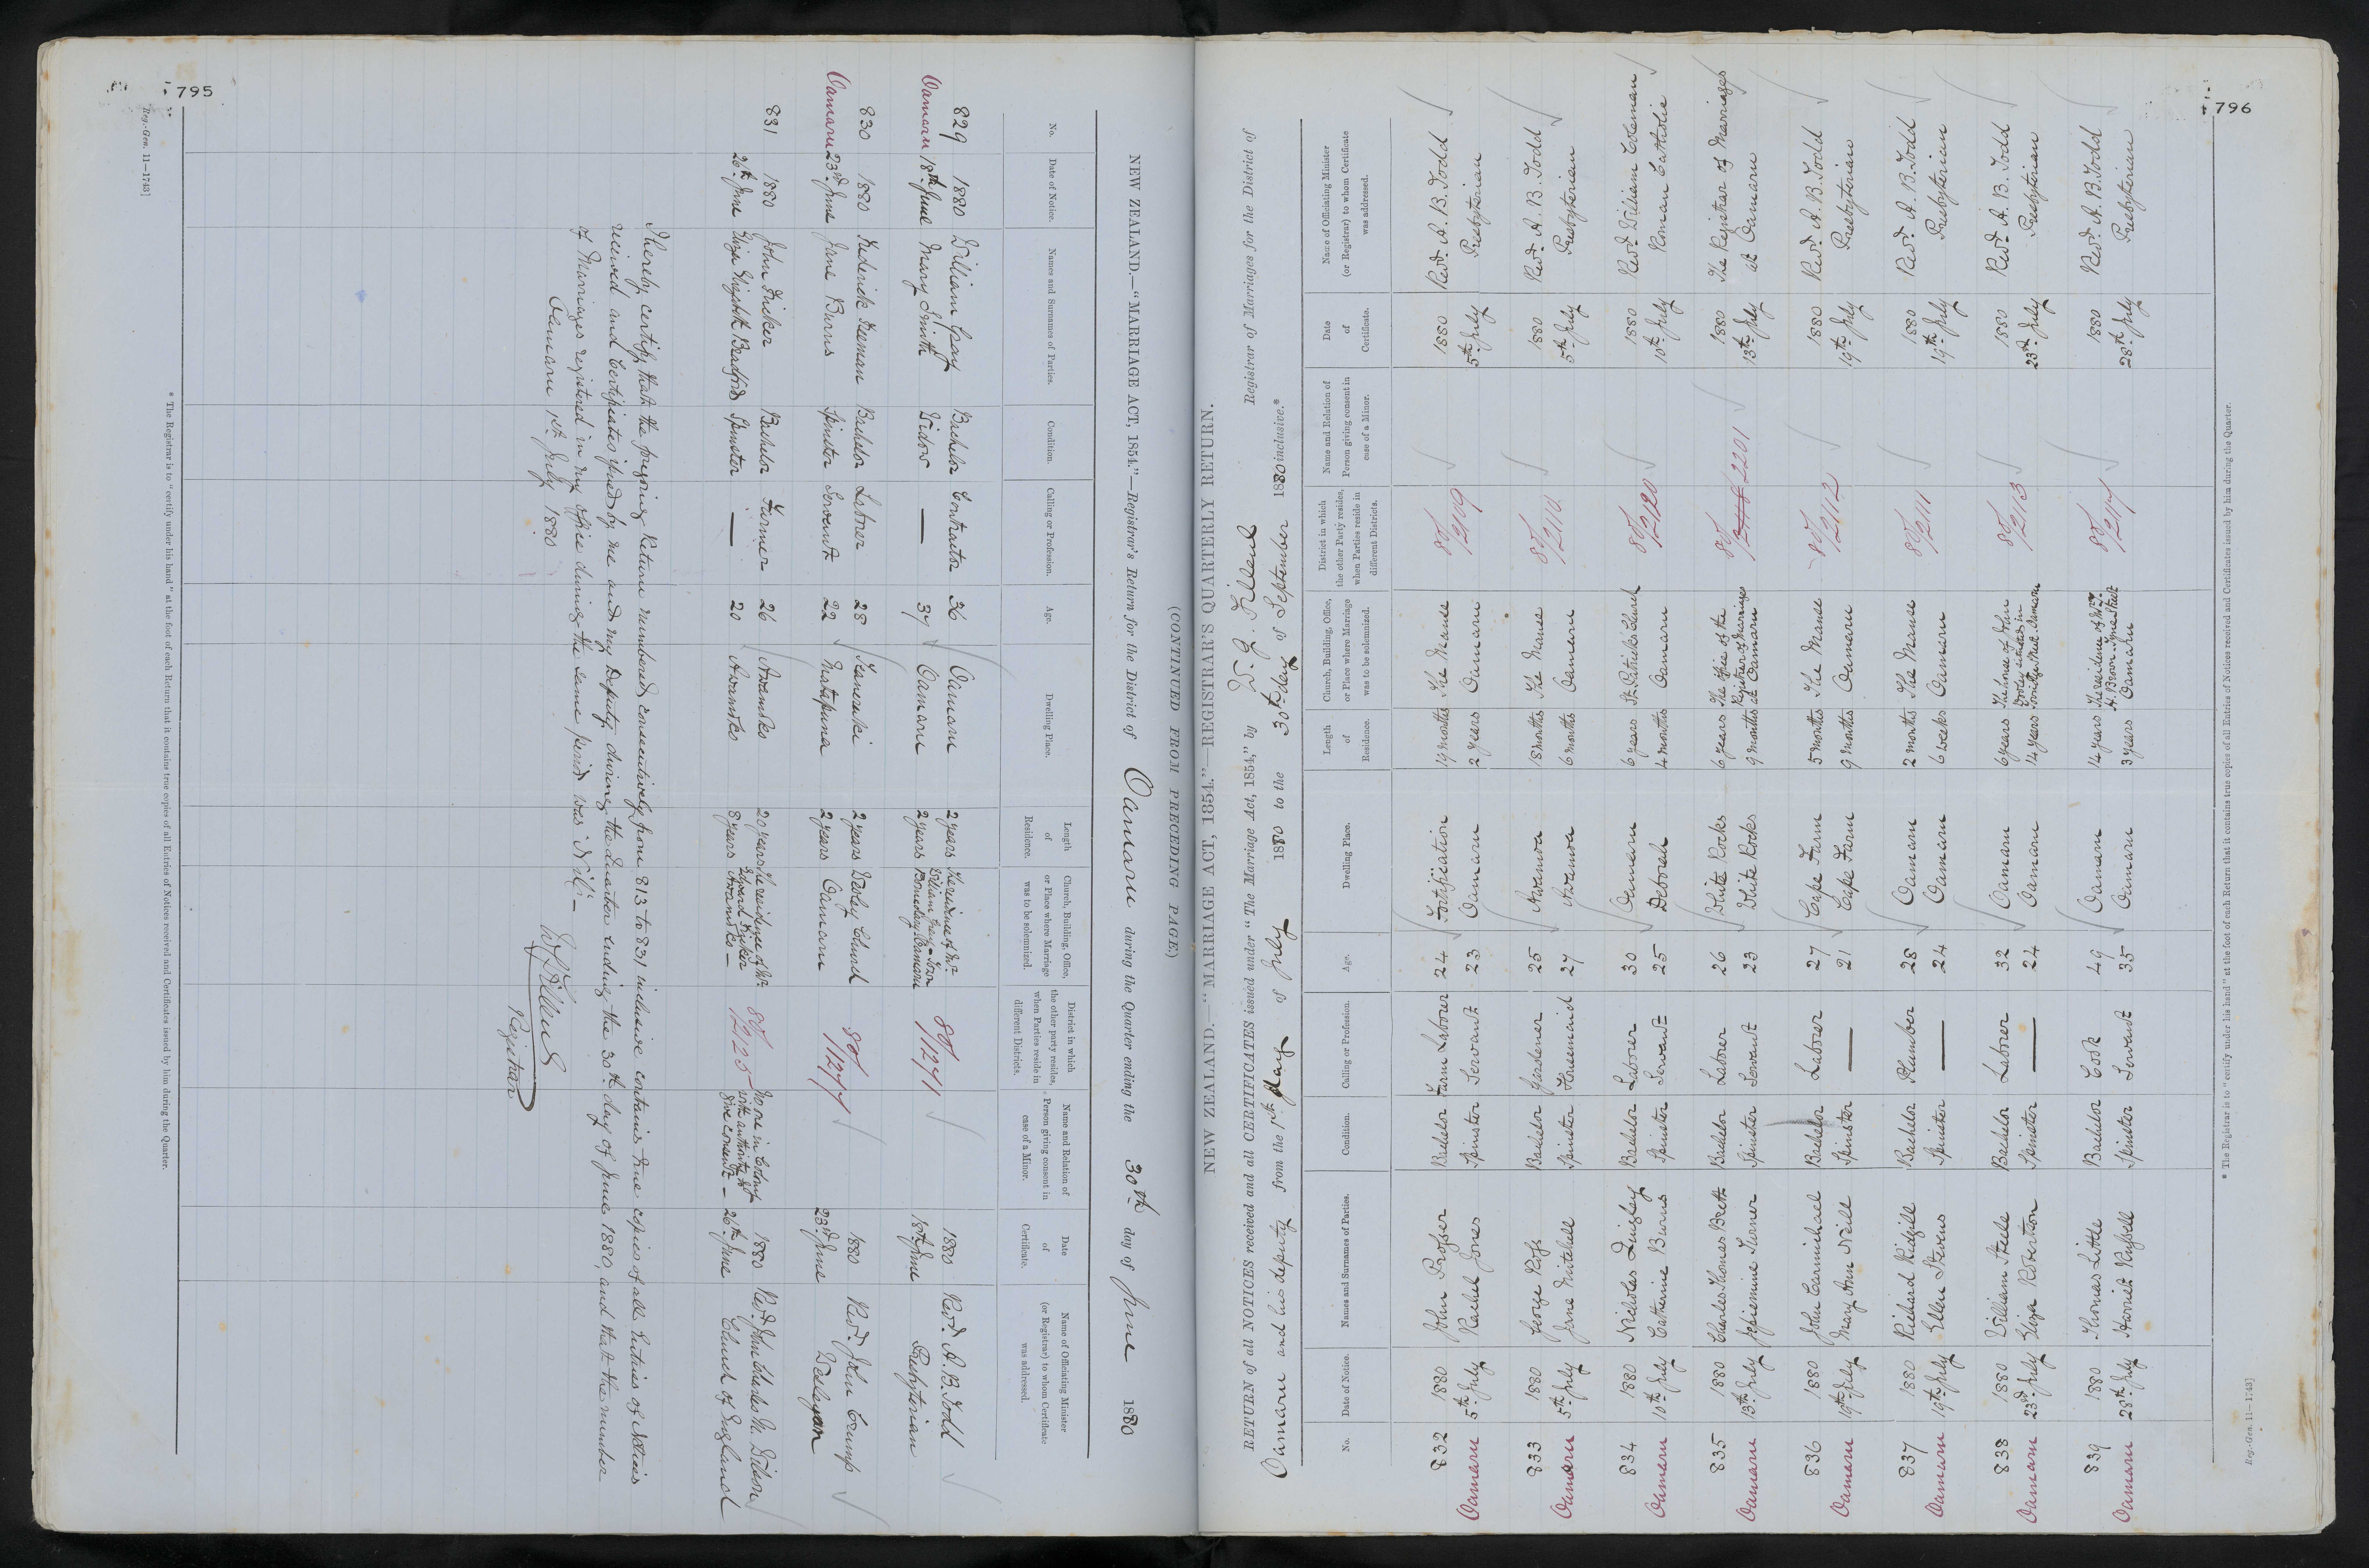 795
(CONTINUED FROM PRECEDING PAGE.)
NEW ZEALAND.—"MARRIAGE ACT, 1854."—Registrar's Return for the District of Oamaru during the Quarter ending the 30th day of June 1880
No. | Date of Notice. | Names and Surnames of Parties. | Condition. | Calling or Profession. | Age. | Dwelling Place. | Length of Residence. | Church, Building, Office, or Place where Marriage was to be solemnized. | District in which the other party resides, when Parties reside in different Districts. | Name and Relation of Person giving consent in case of a Minor. | Date of Certificate. | Name of Officiating Minister (or Registrar) to whom Certificate was addressed.
829 | 1880 | William Gray | Bachelor | Contractor | 36 | Oamaru | 2 years | The residence of Mr. William Gray | 80/1271 | 1880 | Revd. A. B. Todd
Oamaru | 18th June | Mary Smith | Widow | — | 37 | Oamaru | 2 years | Oamaru | 18th June | Presbyterian
830 | 1880 | Frederick Freeman | Bachelor | Laborer | 28 | 2 years | Wesley Church | 80/1277 | 1880 | Revd. John Crump
Oamaru | 23rd June | Jane Burns | Spinster | Servant | 22 | 2 years | Oamaru | 23rd June | Wesleyan
831 | 1880 | John Fricker | Bachelor | Farmer | 26 | Awamoko | 20 years | The residence of Mr. Edward Fricker | 80/2125 | No one in Colony with authority to give consent – | 1880
26th June | Eliza Elizabeth Bradford | Spinster | — | 20 | Awamoko | 8 years | Awamoko – | 26th June | Church of England
I hereby certify, that the foregoing Return numbered consecutively from 813 to 831 inclusive contains true copies of all Entries of Notices
received and Certificates issued by me and my Deputy during the Quarter ending the 30th day of June 1880, and that the number
of Marriages registered in my office during the same period was Nil.–
Oamaru 1st July 1880
Registrar
* The Registrar is to "certify under his hand" at the foot of each Return that it contains true copies of all Entries of Notices received and Certificates issued by him during the Quarter.
Reg.-Gen. 11—1743]
796
NEW ZEALAND.—"MARRIAGE ACT, 1854."—REGISTRAR'S QUARTERLY RETURN.
RETURN of all NOTICES received and all CERTIFICATES issued under "The Marriage Act, 1854," by Registrar of Marriages for the District of
Oamaru and his deputy from the 1st day of July 1880 to the 30th day of September 1880 inclusive.*
No. | Date of Notice. | Names and Surnames of Parties. | Condition. | Calling or Profession. | Age. | Dwelling Place. | Length of Residence. | Church, Building, Office, or Place where Marriage was to be solemnized. | District in which the other Party resides, when Parties reside in different Districts. | Name and Relation of Person giving consent in case of a Minor. | Date of Certificate. | Name of Officiating Minister (or Registrar) to whom Certificate was addressed.
832 | 1880 | John Prosser | Bachelor | Farm Laborer | 24 | Fortification | 19 months | The Manse | 80/2109 | 1880 | Revd. A. B. Todd
Oamaru | 5th July | Rachel Jones | Spinster | Servant | 23 | Oamaru | 2 years | Oamaru | 5th July | Presbyterian
833 | 1880 | George Ross | Bachelor | Gardener | 25 | Awamoa | 18 months | The Manse | 80/2110 | 1880 | Revd. A. B. Todd
Oamaru | 5th July | Jane Mitchell | Spinster | Housemaid | 27 | Awamoa | 6 months | Oamaru | 5th July | Presbyterian
834 | 1880 | Nicholas Quigley | Bachelor | Laborer | 30 | Oamaru | 6 years | St. Patrick's Church | 80/2120 | 1880 | Revd. William Coleman
Oamaru | 10th July | Catherine Burns | Spinster | Servant | 25 | Deborah | 4 months | Oamaru | 10th July | Roman Catholic
835 | 1880 | Charles Thomas Brett | Bachelor | Laborer | 26 | White Rocks | 6 years | The Office of the Registrar of Marriages | 80/ 2201 | 1880 | The Registrar of Marriages
Oamaru | 13th July | Jessiemine Turner | Spinster | Servant | 23 | White Rocks | 9 months | at Oamaru | 13th July | at Oamaru
836 | 1880 | John Carmichael | Bachelor | Laborer | 27 | Cape Farm | 5 months | The Manse | 80/2112 | 1880 | Revd. A. B. Todd
Oamaru | 19th July | Mary Ann Neill | Spinster | — | 21 | Cape Farm | 9 months | Oamaru | 19th July | Presbyterian
837 | 1880 | Richard Ridgill | Bachelor | Plumber | 28 | Oamaru | 2 months | The Manse | 80/2111 | 1880 | Revd. A. B. Todd
Oamaru | 19th July | Ellen Stevens | Spinster | — | 24 | Oamaru | 6 weeks | Oamaru | 19th July | Presbyterian
838 | 1880 | William Steele | Bachelor | Laborer | 32 | Oamaru | 6 years | The house of | 80/2113 | 1880 | Revd. A. B. Todd
Oamaru | 23rd July | Eliza Robertson | Spinster | — | 24 | Oamaru | 14 years | Street Oamaru | 23rd July | Presbyterian
839 | 1880 | Thomas Little | Bachelor | Cook | 49 | Oamaru | 14 years | The residence of Mr. H. Brown Tyne Street | 80/2114 | 1880 | Revd. A. B. Todd
Oamaru | 28th July | Harriet Russell | Spinster | Servant | 35 | Oamaru | 3 years | Oamaru | 28th July | Presbyterian
* The Registrar is to "certify under his hand" at the foot of each Return that it contains true copies of all Entries of Notices received and Certificates issued by him during the Quarter.
Reg.-Gen. 11—1743]